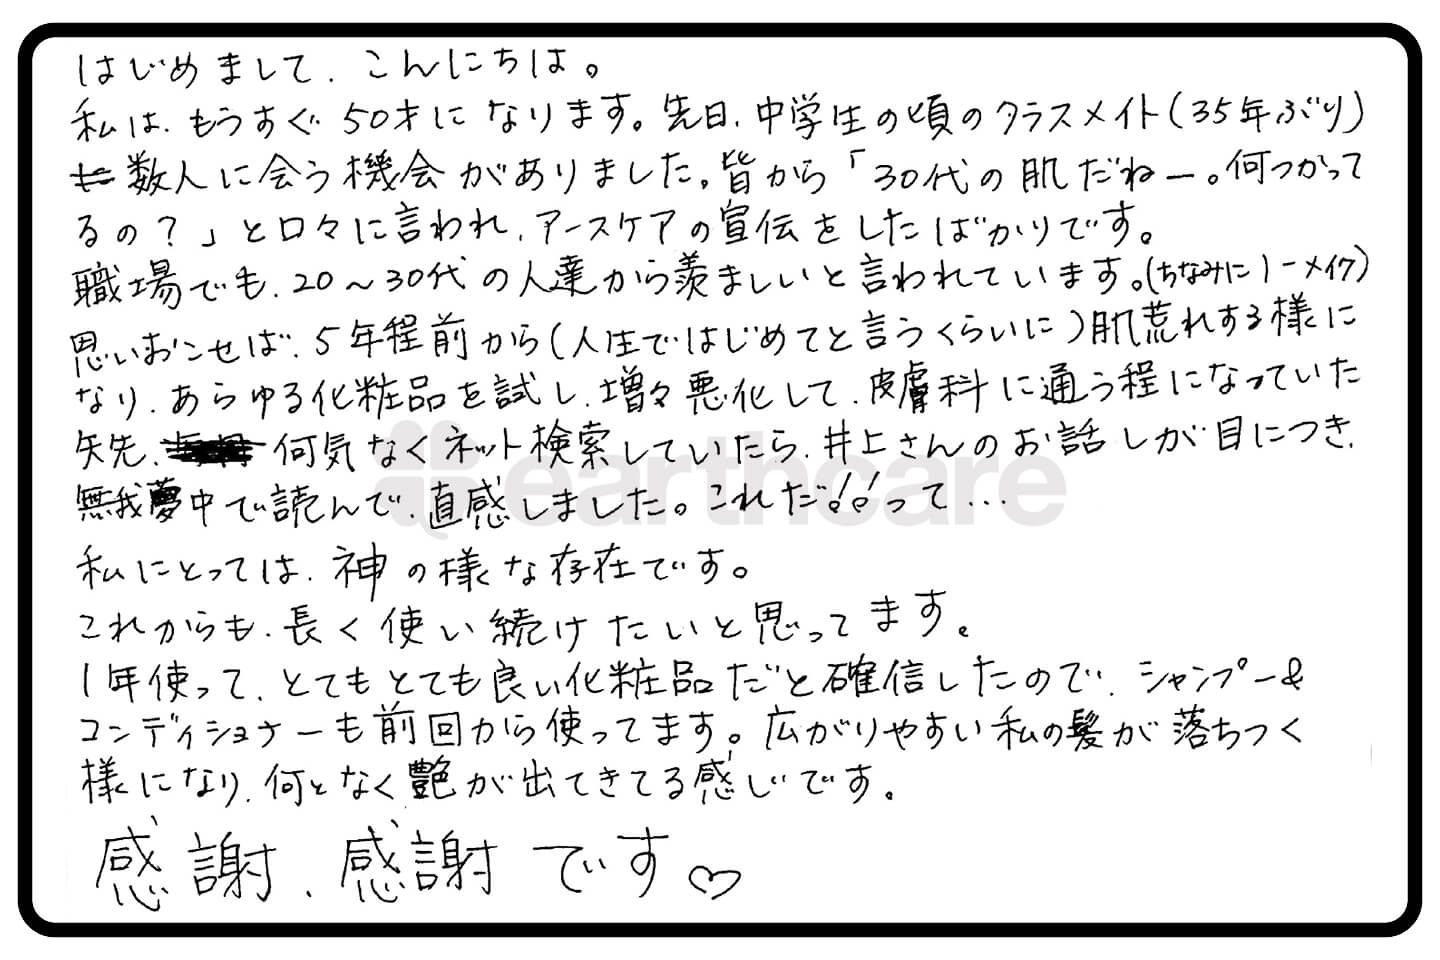 はじめまして、こんにちは。
私は、もうすぐ50才になります。先日、中学生の頃のクラスメイト(35年ぶり)
数人に会う機会がありました。皆から「30代の肌だねー。何つかって
るの？」と口々に言われ、アースケアの宣伝をしたばかりです。
職場でも、20〜30代の人達から羨ましいと言われています。(ちなみにノーメイク)
思いおこせば、5年程前から(人生ではじめてと言うくらいに)肌荒れする様に
なり、あらゆる化粧品を試し、増々悪化して、皮膚科に通う程になっていた
矢先、何気なくネット検索していたら、井上さんのお話しが目につき、
無我夢中で読んで、直感しました。これだ!!って…
私にとっては、神の様な存在です。
これからも、長く使い続けたいと思ってます。
1年使って、とてもとても良い化粧品だと確信したので、シャンプー&
コンディショナーも前回から使ってます。広がりやすい私の髪が落ちつく
様になり、何となく艶が出てきてる感じです。
感謝、感謝です♡
earthcare